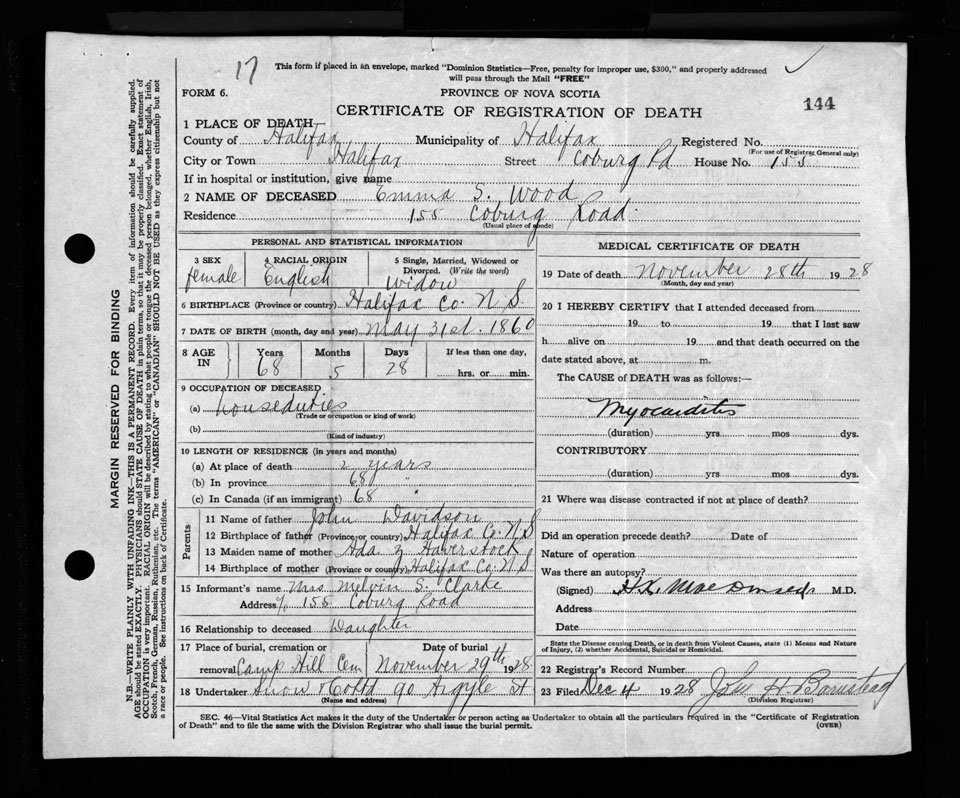 17
This form if placed in an envelope, marked "Dominion Statistics—Free, penalty for improper use, $300," and properly addressed
will pass through the Mail "FREE"
FORM 6.
PROVINCE OF NOVA SCOTIA
144
CERTIFICATE OF REGISTRATION OF DEATH
1 PLACE OF DEATH—
County of Halifax Municipality of Halifax Registered No.
(For use of Registrar General only)
City or Town Halifax Street Coburg Rd House No. 155
If in hospital or institution, give name
2 NAME OF DECEASED Emma S. Wood
Residence 155 Coburg Road
(Usual place of abode)
PERSONAL AND STATISTICAL INFORMATION
3 SEX female
4 RACIAL ORIGIN English
5 Single, Married, Widowed or
Divorced. (Write the word)
Widow
6 BIRTHPLACE (Province or country) Halifax Co. N.S.
7 DATE OF BIRTH (month, day and year) May 31st. 1860
8 AGE IN
Years 68
Months 5
Days 28
If less than one day,
hrs. or min.
9 OCCUPATION OF DECEASED
(a) houseduties
(Trade or occupation or kind of work)
(b)
(Kind of industry)
10 LENGTH OF RESIDENCE (in years and months)
(a) At place of death 2 years
(b) In province 68 "
(c) In Canada (if an immigrant) 68 "
Parents
11 Name of father John Davidson
12 Birthplace of father (Province or country) Halifax Co. N.S
13 Maiden name of mother Ada Haverstock
14 Birthplace of mother (Province or country) Halifax Co. N.S
15 Informant's name Mrs Melvin S. Clarke
Address % 155 Coburg Road
16 Relationship to deceased Daughter
17 Place of burial, cremation or
removal Camp Hill Cem
Date of burial
November 29th 1928
18 Undertaker Snow & Co Ltd 90 Argyle St
(Name and address)
MEDICAL CERTIFICATE OF DEATH
19 Date of death November 28th 1928
(Month, day and year)
20 I HEREBY CERTIFY that I attended deceased from
19 to 19 that I last saw
h alive on 19 and that death occurred on the
date stated above, at m.
The CAUSE OF DEATH was as follows:—
Myocarditis
(duration) yrs mos dys.
CONTRIBUTORY
(duration) yrs. mos dys.
21 Where was disease contracted if not at place of death?
Did an operation precede death? Date of
Nature of operation
Was there an autopsy?
(Signed) M.D.
Address
Date
State the Disease causing Death, or in death from Violent Causes, state (1) Means and Nature
of Injury, (2) whether Accidental, Suicidal or Homicidal.
22 Registrar's Record Number
23 Filed Dec 4 1928 John H. Barnstead
(Division Registrar)
SEC. 46—Vital Statistics Act makes it the duty of the Undertaker or person acting as Undertaker to obtain all the particulars required in the "Certificate of Registration
of Death" and to file the same with the Division Registrar who shall issue the burial permit.
(OVER)
MARGIN RESERVED FOR BINDING
N.B.—WRITE PLAINLY WITH UNFADING INK—THIS IS A PERMANENT RECORD. Every item of information should be carefully supplied.
AGE should be stated EXACTLY. PHYSICIANS should STATE CAUSE OF DEATH in plain terms, so that it may be properly classified. Exact statement of
OCCUPATION is very important. RACIAL ORIGIN will be described by stating to what people or tongue the deceased person belonged, whether English, Irish,
Scotch, French, German, Russian, Ruthenian, etc. The terms "AMERICAN" or "CANADIAN" SHOULD NOT BE USED as they express citizenship but not
a race or people. See instructions on back of Certificate.